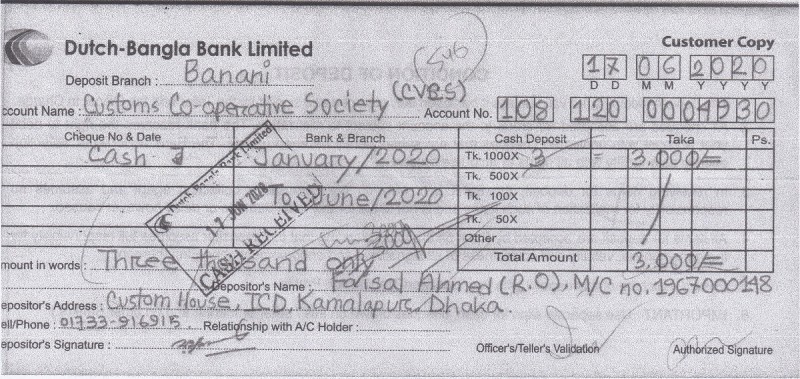 Dutch-Bangla Bank Limited
Customer Copy
Deposit Branch : Banani
17 06 2020
D D M M Y Y Y Y
ccount Name : Customs Co-operative Society (CVCS) Account No. 108 120 0004930
Cheque No & Date Bank & Branch Cash Deposit Taka Ps.
Cash January/2020 Tk. 1000X 3 = 3.000/=
Tk. 500X
To June/2020 Tk. 100X
Tk. 50X
Other
Total Amount 3.000/=
Dutch Bangla Bank Limited
17 JUN 2020
CASH RECEIVED
mount in words : Three thousand only
Depositor's Name : Faisal Ahmed (R.O), M/C no. 1967000148
epositor's Address : Custom House, ICD, Kamalapur, Dhaka.
ell/Phone : 01733-916915 Relationship with A/C Holder :
epositor's Signature :
Officer's/Teller's Validation
Authorized Signature